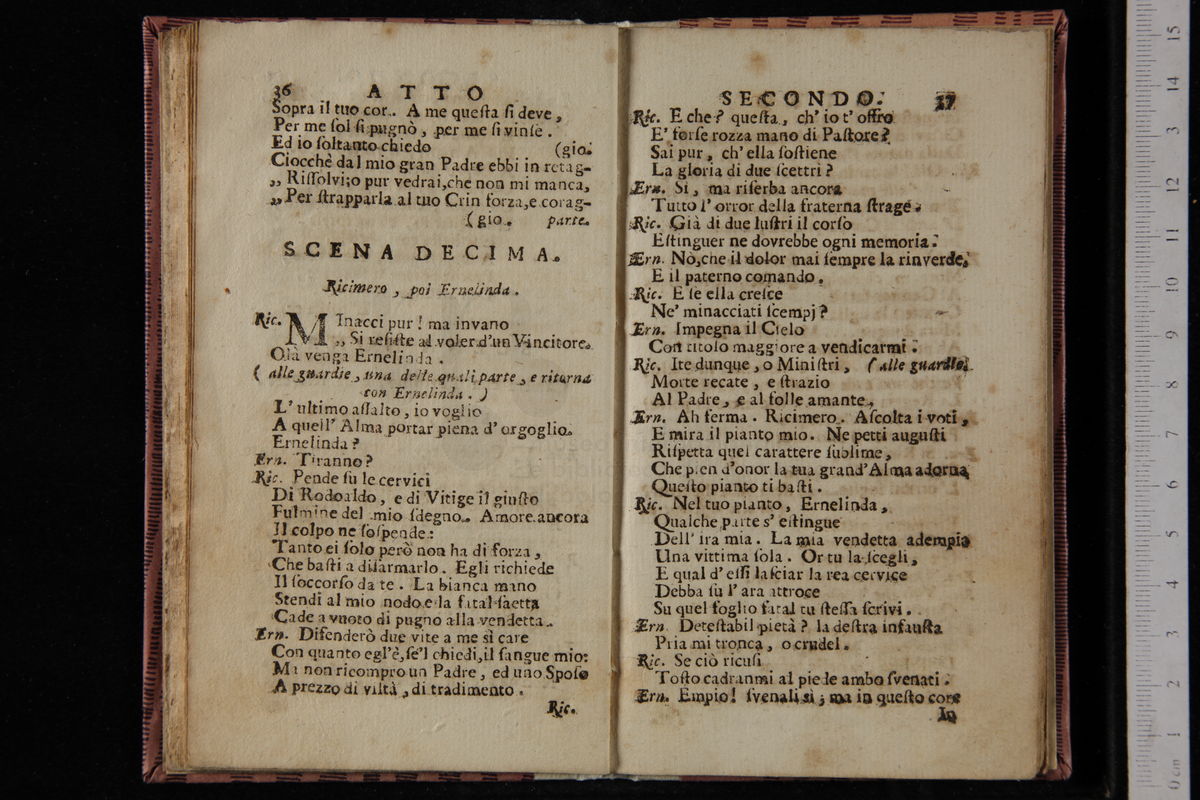 36 ATTO
Sopra il tuo cor.. A me queſta ſi deve,
Per me ſol ſi pugnò, per me ſi vinſe.
Ed io ſoltanto chiedo (gio.
Ciocchè dal mio gran Padre ebbi in retag-
,, Riſſolvi;o pur vedrai,che non mi manca,
,, Per ſtrapparla al tuo Crin forza,e corag-
(gio. parte.
SCENA DECIMA.
Ricimero, poi Ernelinda.
Ric. MInacci pur! ma invano
,, Si reſiſte al voler d'un Vincitore.
Olà venga Ernelinda.
( alle guardie, una delle quali parte, e ritorna
con Ernelinda. )
L'ultimo aſſalto, io voglio
A quell' Alma portar piena d'orgoglio.
Ernelinda?
Ern. Tiranno?
Ric. Pende ſù le cervici
Di Rodoaldo, e di Vitige il giuſto
Fulmine del mio ſdegno. Amore ancora
Il colpo ne ſoſpende:
Tanto ei ſolo però non ha di forza,
Che baſti a diſarmarlo. Egli richiede
Il ſoccorſo da te. La bianca mano
Stendi al mio nodo e la fatal ſaetta
Cade a vuoto di pugno alla vendetta.
Ern. Difenderò due vite a me sì care
Con quanto egl'è,ſe'l chiedi,il ſangue mio:
Ma non ricompro un Padre, ed uno Spoſo
A prezzo di viltà, di tradimento.
Ric.
SECONDO. 37
Ric. E che? queſta, ch'io t'offro
E' forſe rozza mano di Paſtore?
Sai pur, ch'ella ſoſtiene
La gloria di due ſcettri?
Ern. Si, ma riſerba ancora
Tutto l'orror della fraterna ſtrage.
Ric. Già di due luſtri il corſo
Eſtinguer ne dovrebbe ogni memoria.
Ern. Nò,che il dolor mai ſempre la rinverde,
E il paterno comando.
Ric. E ſe ella creſce
Ne' minacciati ſcempj?
Ern. Impegna il Cielo
Con titolo maggiore a vendicarmi.
Ric. Ite dunque, o Miniſtri, (alle guardie.
Morte recate, e ſtrazio
Al Padre, e al folle amante.
Ern. Ah ferma. Ricimero. Aſcolta i voti,
E mira il pianto mio. Ne petti auguſti
Riſpetta quel carattere ſublime,
Che pien d'onor la tua grand'Alma adorna,
Queſto pianto ti baſti.
Ric. Nel tuo pianto, Ernelinda,
Qualche parte s'eſtingue
Dell' ira mia. La mia vendetta adempia
Una vittima ſola. Or tu la ſcegli,
E qual d'eſſi laſciar la rea cervice
Debba ſù l'ara attroce
Su quel foglio fatal tu ſteſſa ſcrivi.
Ern. Deteſtabil pietà? la deſtra infauſta
Pria mi tronca, o crudel.
Ric. Se ciò ricuſi
Toſto cadranmi al piede ambo ſvenati.
Ern. Empio! ſvenali sì; ma in queſto core
In